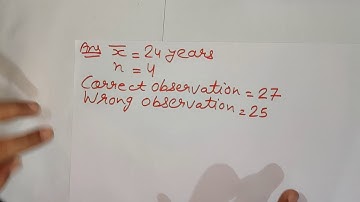 Ans x̅ = 24 years
n = 4
Correct observation = 27
Wrong observation = 25